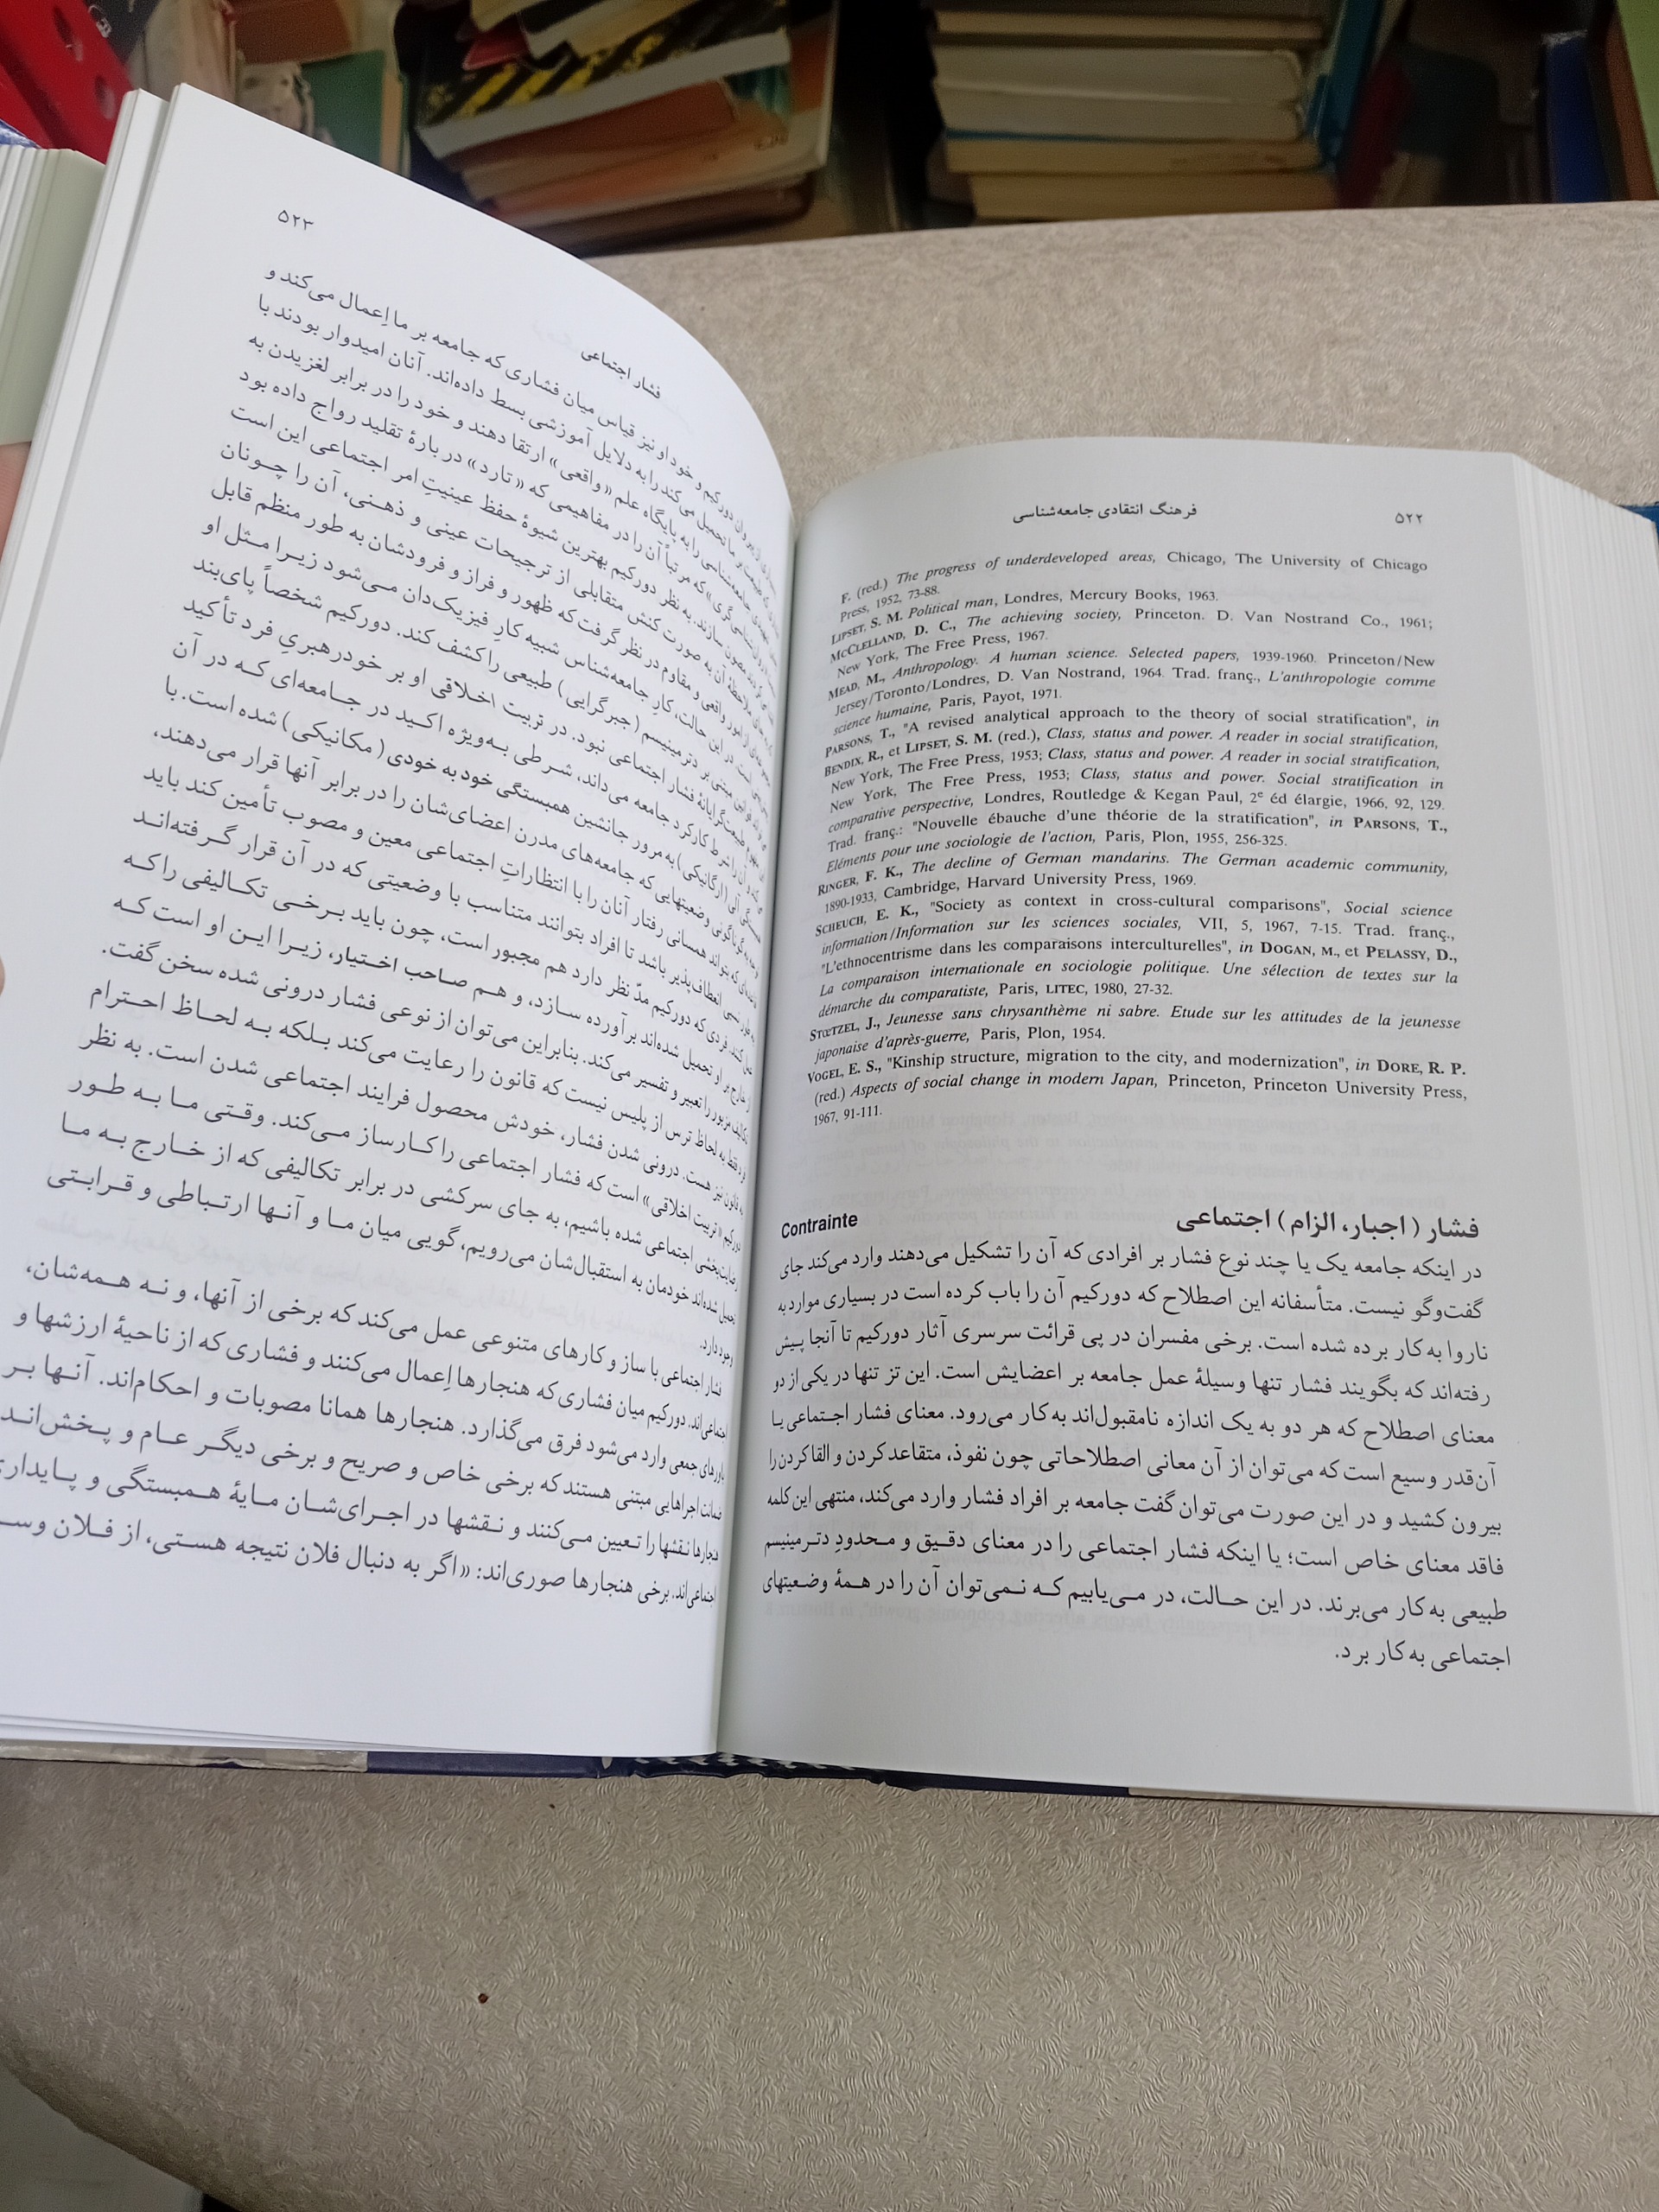 ۵۲۲
فرهنگ انتقادی جامعه‌شناسی
F. (red.) The progress of underdeveloped areas, Chicago, The University of Chicago
Press, 1952, 73-88.
LIPSET, S. M. Political man, Londres, Mercury Books, 1963.
MCCLELLAND, D. C., The achieving society, Princeton. D. Van Nostrand Co., 1961;
New York, The Free Press, 1967.
MEAD, M., Anthropology. A human science. Selected papers, 1939-1960. Princeton/New
Jersey/Toronto/Londres, D. Van Nostrand, 1964. Trad. franç., L'anthropologie comme
science humaine, Paris, Payot, 1971.
PARSONS, T., "A revised analytical approach to the theory of social stratification", in
BENDIX, R., et LIPSET, S. M. (red.), Class, status and power. A reader in social stratification,
New York, The Free Press, 1953; Class, status and power. A reader in social stratification,
New York, The Free Press, 1953; Class, status and power. Social stratification in
comparative perspective, Londres, Routledge & Kegan Paul, 2e éd élargie, 1966, 92, 129.
Trad. franç.: "Nouvelle ébauche d'une théorie de la stratification", in PARSONS, T.,
Eléments pour une sociologie de l'action, Paris, Plon, 1955, 256-325.
RINGER, F. K., The decline of German mandarins. The German academic community,
1890-1933, Cambridge, Harvard University Press, 1969.
SCHEUCH, E. K., "Society as context in cross-cultural comparisons", Social science
information/Information sur les sciences sociales, VII, 5, 1967, 7-15. Trad. franç.,
"L'ethnocentrisme dans les comparaisons interculturelles", in DOGAN, M., et PELASSY, D.,
La comparaison internationale en sociologie politique. Une sélection de textes sur la
démarche du comparatiste, Paris, LITEC, 1980, 27-32.
STŒTZEL, J., Jeunesse sans chrysanthème ni sabre. Etude sur les attitudes de la jeunesse
japonaise d'après-guerre, Paris, Plon, 1954.
VOGEL, E. S., "Kinship structure, migration to the city, and modernization", in DORE, R. P.
(red.) Aspects of social change in modern Japan, Princeton, Princeton University Press,
1967, 91-111.
فشار (اجبار، الزام) اجتماعی Contrainte
در اینکه جامعه یک یا چند نوع فشار بر افرادی که آن را تشکیل می‌دهند وارد می‌کند جای
گفت‌وگو نیست. متأسفانه این اصطلاح که دورکیم آن را باب کرده است در بسیاری موارد به
ناروا به‌کار برده شده است. برخی مفسران در پی قرائت سرسری آثار دورکیم تا آنجا پیش
رفته‌اند که بگویند فشار تنها وسیلهٔ عمل جامعه بر اعضایش است. این تز تنها در یکی از دو
معنای اصطلاح که هر دو به یک اندازه نامقبول‌اند به‌کار می‌رود. معنای فشار اجتماعی یا
آن‌قدر وسیع است که می‌توان از آن معانی اصطلاحاتی چون نفوذ، متقاعد کردن و القا کردن را
بیرون کشید و در این صورت می‌توان گفت جامعه بر افراد فشار وارد می‌کند، منتهی این کلمه
فاقد معنای خاص است؛ یا اینکه فشار اجتماعی را در معنای دقیق و محدودِ دترمینیسم
طبیعی به‌کار می‌برند. در این حالت، در می‌یابیم که نمی‌توان آن را در همهٔ وضعیتهای
اجتماعی به‌کار برد.
۵۲۳
فشار اجتماعی
دورکیم و خود او نیز قیاس میان فشاری که جامعه بر ما اِعمال می‌کند و
ما تحمیل می‌کند را به دلایل آموزشی بسط داده‌اند. آنان امیدوار بودند با
جامعه‌شناسی را به پایگاه علم «واقعی» ارتقا دهند و خود را در برابر لغزیدن به
که مرتباً آن را در مفاهیمی که «تارد» در بارهٔ تقلید رواج داده بود
مصون سازند. به نظر دورکیم بهترین شیوهٔ حفظ عینیتِ امر اجتماعی این است
ملاحظهٔ آن به صورت کنش متقابلی از ترجیحات عینی و ذهنی، آن را چونان
امور واقعی و مقاوم در نظر گرفت که ظهور و فراز و فرودشان به طور منظم قابل
است. در این حالت، کارِ جامعه‌شناس شبیه کارِ فیزیک‌دان می‌شود زیرا مثل او
قوانین مبتنی بر دترمینیسم (جبرگرایی) طبیعی را کشف کند. دورکیم شخصاً پای‌بند
مفهوم طبیعت‌گرایانهٔ فشار اجتماعی نبود. در تربیت اخلاقی او بر خودرهبریِ فرد تأکید
می‌کند و آن را شرط کارکرد جامعه می‌داند، شرطی به‌ویژه اکید در جامعه‌ای که در آن
همبستگی آلی (ارگانیکی) به مرور جانشین همبستگی خود به خودی (مکانیکی) شده است. با
توجه به گوناگونی وضعیتهایی که جامعه‌های مدرن اعضای‌شان را در برابر آنها قرار می‌دهند،
که بتواند همسانی رفتار آنان را با انتظاراتِ اجتماعی معین و مصوب تأمین کند باید
انعطاف‌پذیر باشد تا افراد بتوانند متناسب با وضعیتی که در آن قرار گرفته‌اند
عمل کنند. فردی که دورکیم مدّ نظر دارد هم مجبور است، چون باید برخی تکالیفی را که
از خارج بر او تحمیل شده‌اند برآورده سازد، و هم صاحب اختیار، زیرا این او است که
تکالیف مزبور را تعبیر و تفسیر می‌کند. بنابراین می‌توان از نوعی فشار درونی شده سخن گفت.
فرد فقط به لحاظ ترس از پلیس نیست که قانون را رعایت می‌کند بلکه به لحاظ احترام
به قانون نیز هست. درونی شدن فشار، خودش محصول فرایند اجتماعی شدن است. به نظر
دورکیم «تربیت اخلاقی» است که فشار اجتماعی را کارساز می‌کند. وقتی ما به طور
رضایت‌بخشی اجتماعی شده باشیم، به جای سرکشی در برابر تکالیفی که از خارج به ما
تحمیل شده‌اند خودمان به استقبال‌شان می‌رویم، گویی میان ما و آنها ارتباطی و قرابتی
وجود دارد.
فشار اجتماعی با ساز و کارهای متنوعی عمل می‌کند که برخی از آنها، و نه همه‌شان،
اجتماعی‌اند. دورکیم میان فشاری که هنجارها اِعمال می‌کنند و فشاری که از ناحیهٔ ارزشها و
باورهای جمعی وارد می‌شود فرق می‌گذارد. هنجارها همانا مصوبات و احکام‌اند. آنها بر
ضمانت اجراهایی مبتنی هستند که برخی خاص و صریح و برخی دیگر عام و پخش‌اند
هنجارها نقشها را تعیین می‌کنند و نقشها در اجرای‌شان مایهٔ همبستگی و پایداری
اجتماعی‌اند. برخی هنجارها صوری‌اند: «اگر به دنبال فلان نتیجه هستی، از فلان